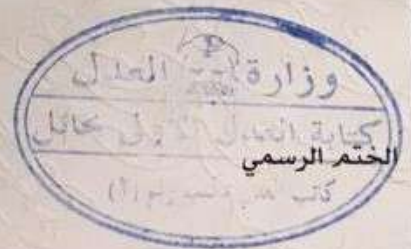 وزارة العدل
كتابة العدل الأولى بحائل
الختم الرسمي
كاتب